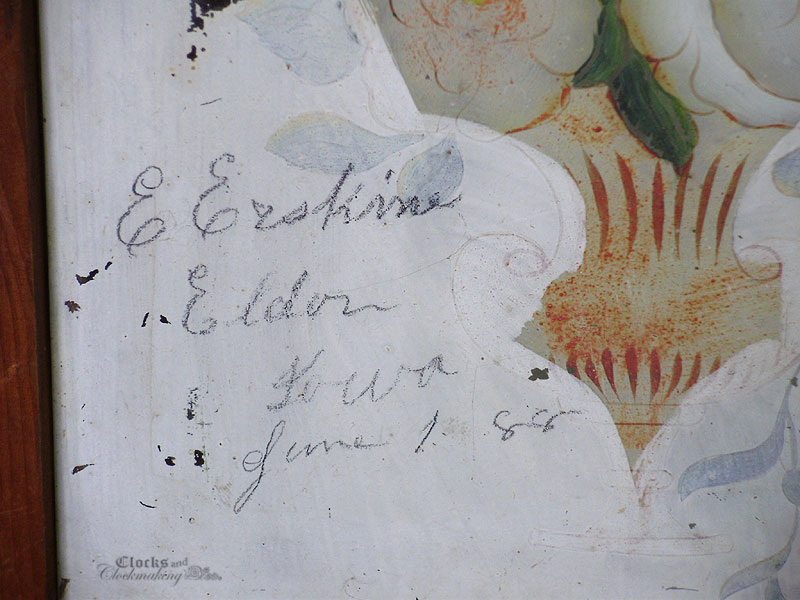 E Erskine
Eldon
Iowa
June 1 88
Clocks and
Clockmaking